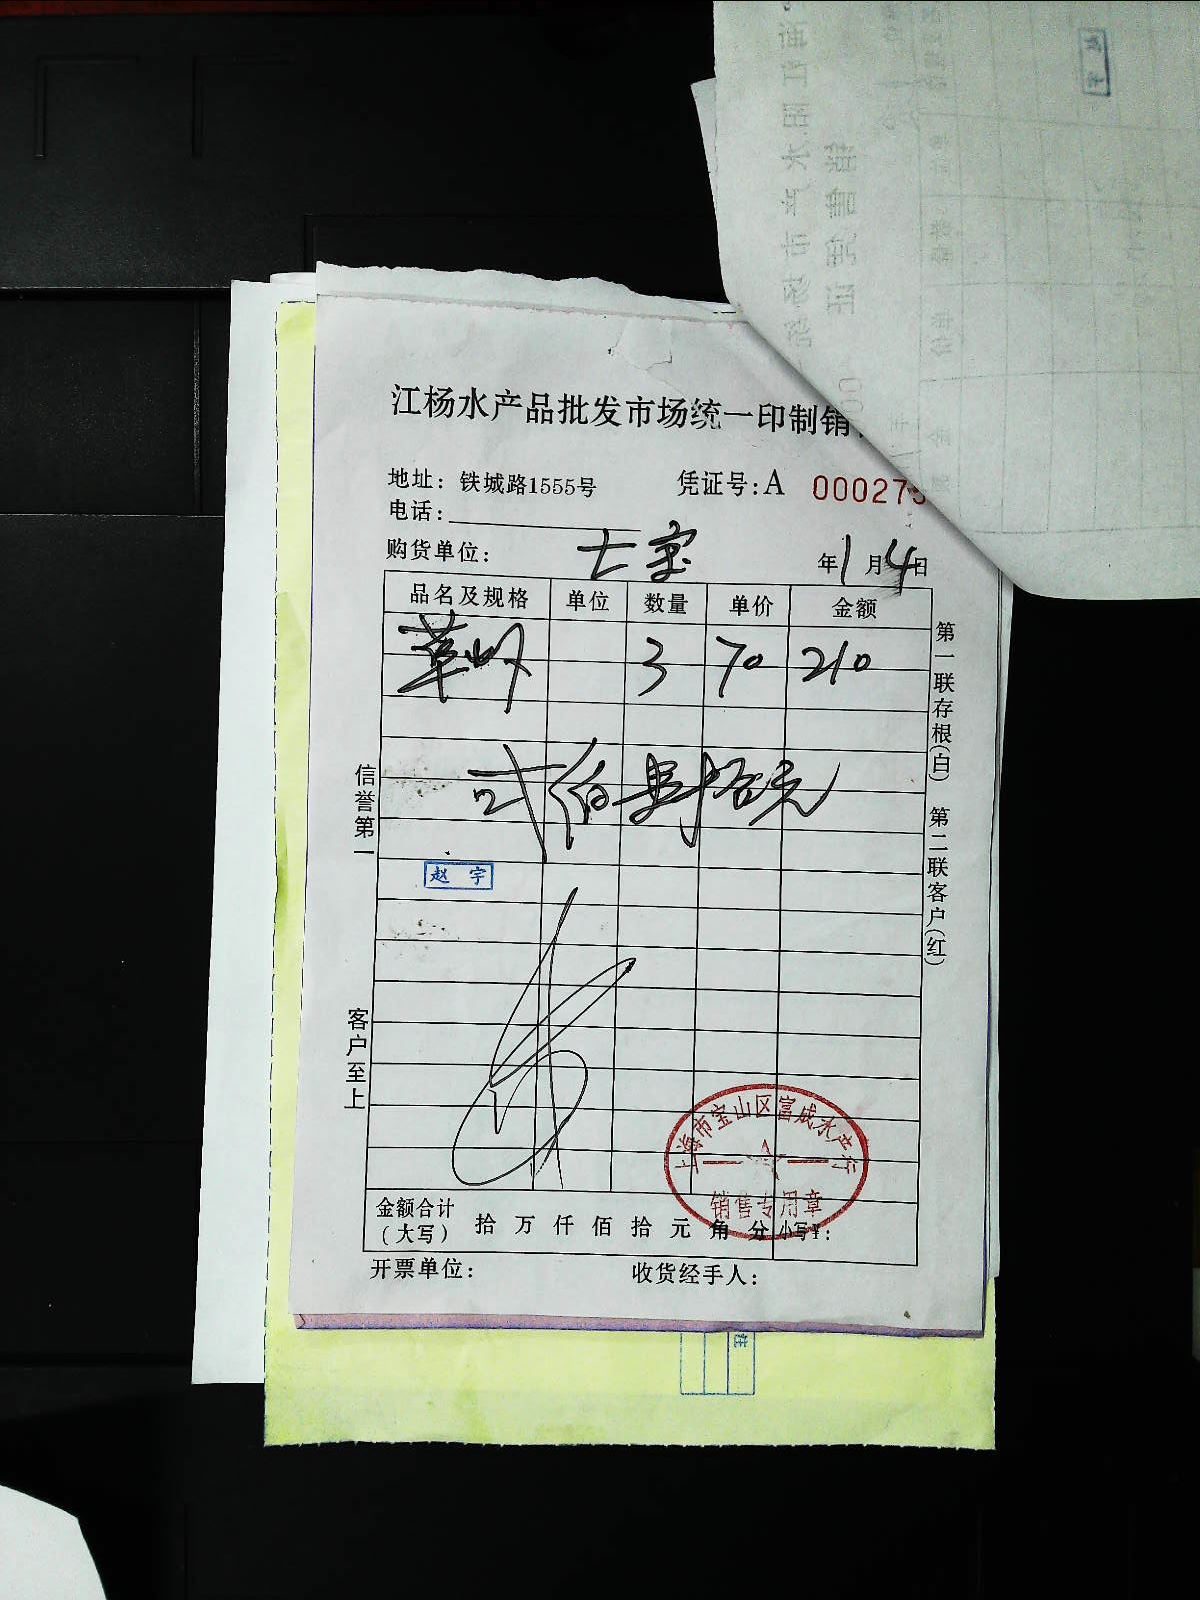 江杨水产品批发市场统一印制销
地址：铁城路1555号 凭证号：A 000275
电话：
购货单位： 七宝 年1月4日
品名及规格 单位 数量 单价 金额
草虾 3 70 210
弍佰壹拾元
赵宇
信誉第一
客户至上
第一联存根(白) 第二联客户(红)
上海市宝山区富成水产行
销售专用章
金额合计(大写) 拾万仟佰拾元角分 小写¥：
开票单位： 收货经手人：